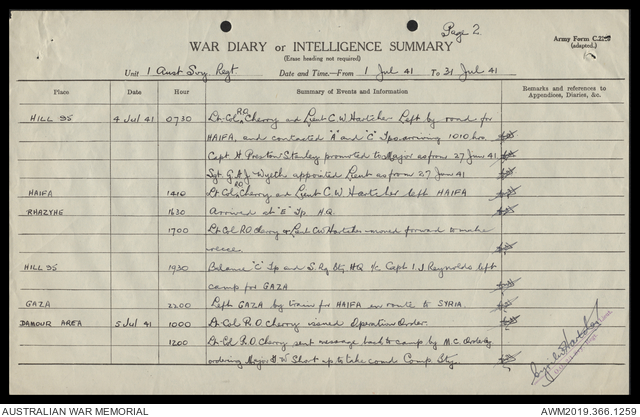 Page 2
WAR DIARY or INTELLIGENCE SUMMARY
(Erase heading not required)
Army Form C.
(adapted.)
Unit 1 Aust Svy Regt Date and Time.—From 1 Jul 41 To 31 Jul 41
Place Date Hour Summary of Events and Information Remarks and references to Appendices, Diaries, &c.
HILL 95 4 Jul 41 0730 Lt-Col RO Cherry and Lieut C.W Hartcher left by road for
HAIFA, and contacted "A" and "C" Tps arriving 1010 hrs.
Capt H Preston Stanley promoted to Major as from 27 Jun 41
Sgt G A J Wyeth appointed Lieut as from 27 Jun 41
HAIFA 1410 Lt Col RO Cherry and Lieut C W Hartcher left HAIFA
RHAZYHE 1630 Arrived at "E" Tp HQ.
1700 Lt-Col R.O Cherry & Lieut CW Hartcher moved forward to make
recce.
HILL 95 1930 Balance "C" Tp and S. Rg Bty HQ i/c Capt I J Reynolds left
camp for GAZA
GAZA 2200 Left GAZA by train for HAIFA en route to SYRIA.
DAMOUR AREA 5 Jul 41 1000 Lt-Col R.O. Cherry issued Operation Order.
1200 Lt-Col R.O. Cherry sent message back to camp by M.C. Orderly
ordering Major Short up to take comd Comp Bty.
AUSTRALIAN WAR MEMORIAL AWM2019.366.1259